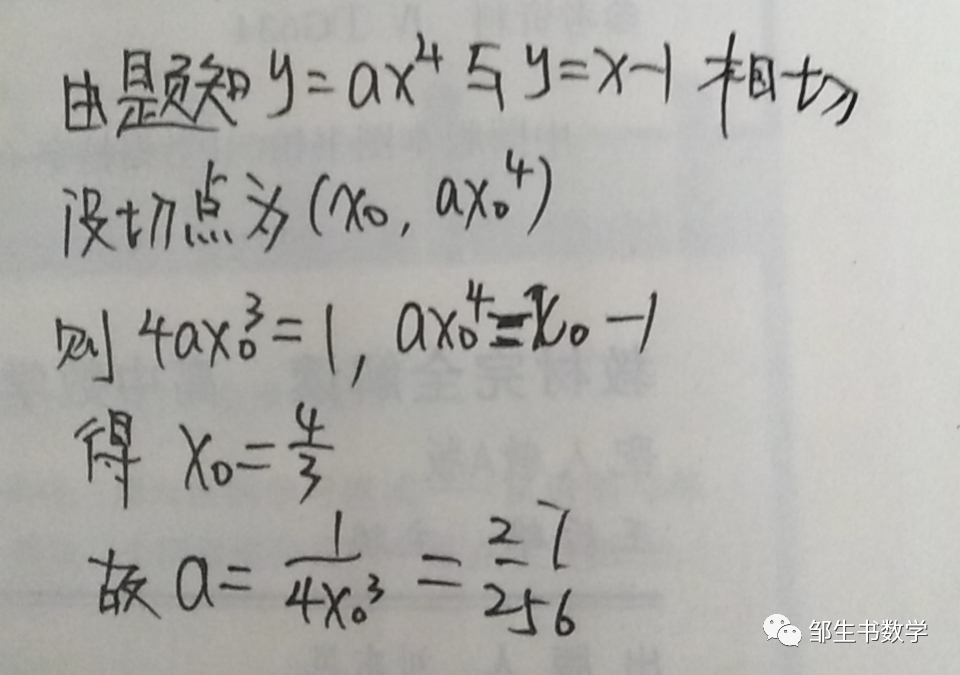 由题知 y=ax⁴与y=x-1 相切
设切点为(x₀, ax₀⁴)
则 4ax₀³=1, ax₀⁴=x₀-1
得 x₀=4/3
故 a=1/(4x₀³)=27/256
邹生书数学